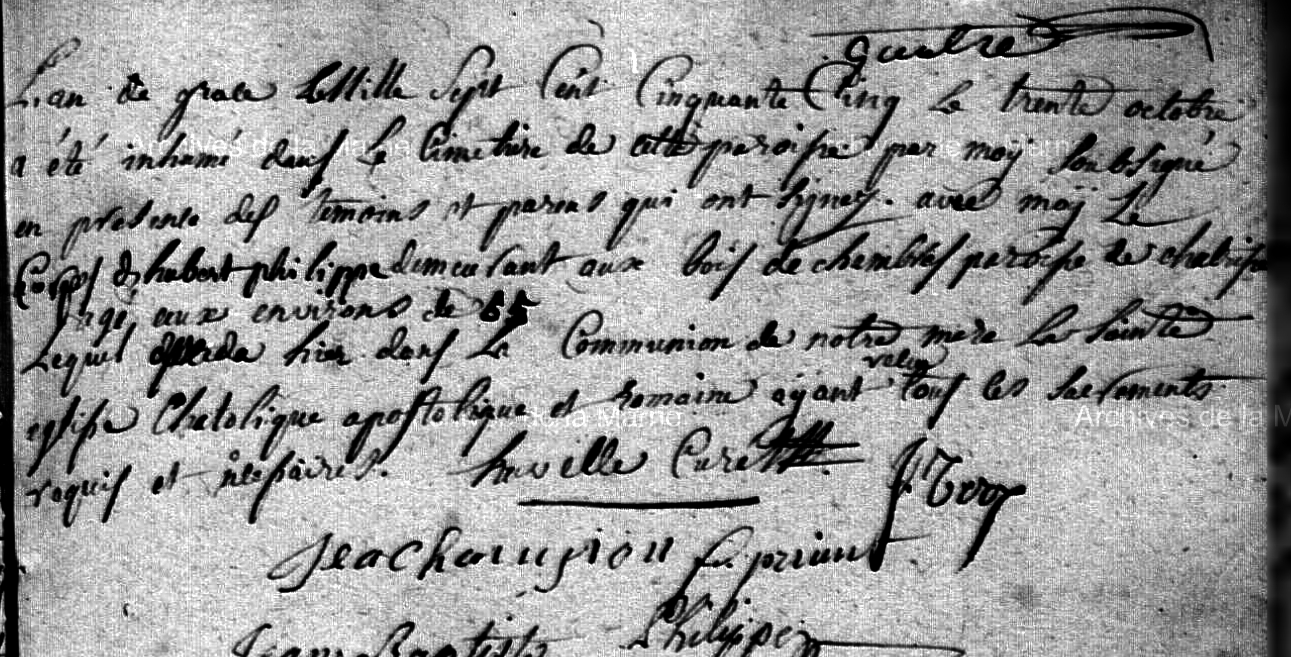 quatre
L'an de grace Mille Sept Cent Cinquante Cinq le trente octobre
a été inhumé dans Le Cimetiere de cette paroisse par moy soubsigné
en presence des temoins et parens qui ont signez. avec moy Le
Corps d'hubert philippe demeurant aux bois de chemblas paroisse de
agé aux environs de 65
Lequel hier dans La Communion de notre mere La sainte
eglise Chatolique apostolique et romaine ayant recu tous les sacrements
requis et nessaires. Curé
Jea Champion
Jean Baptiste Philippe